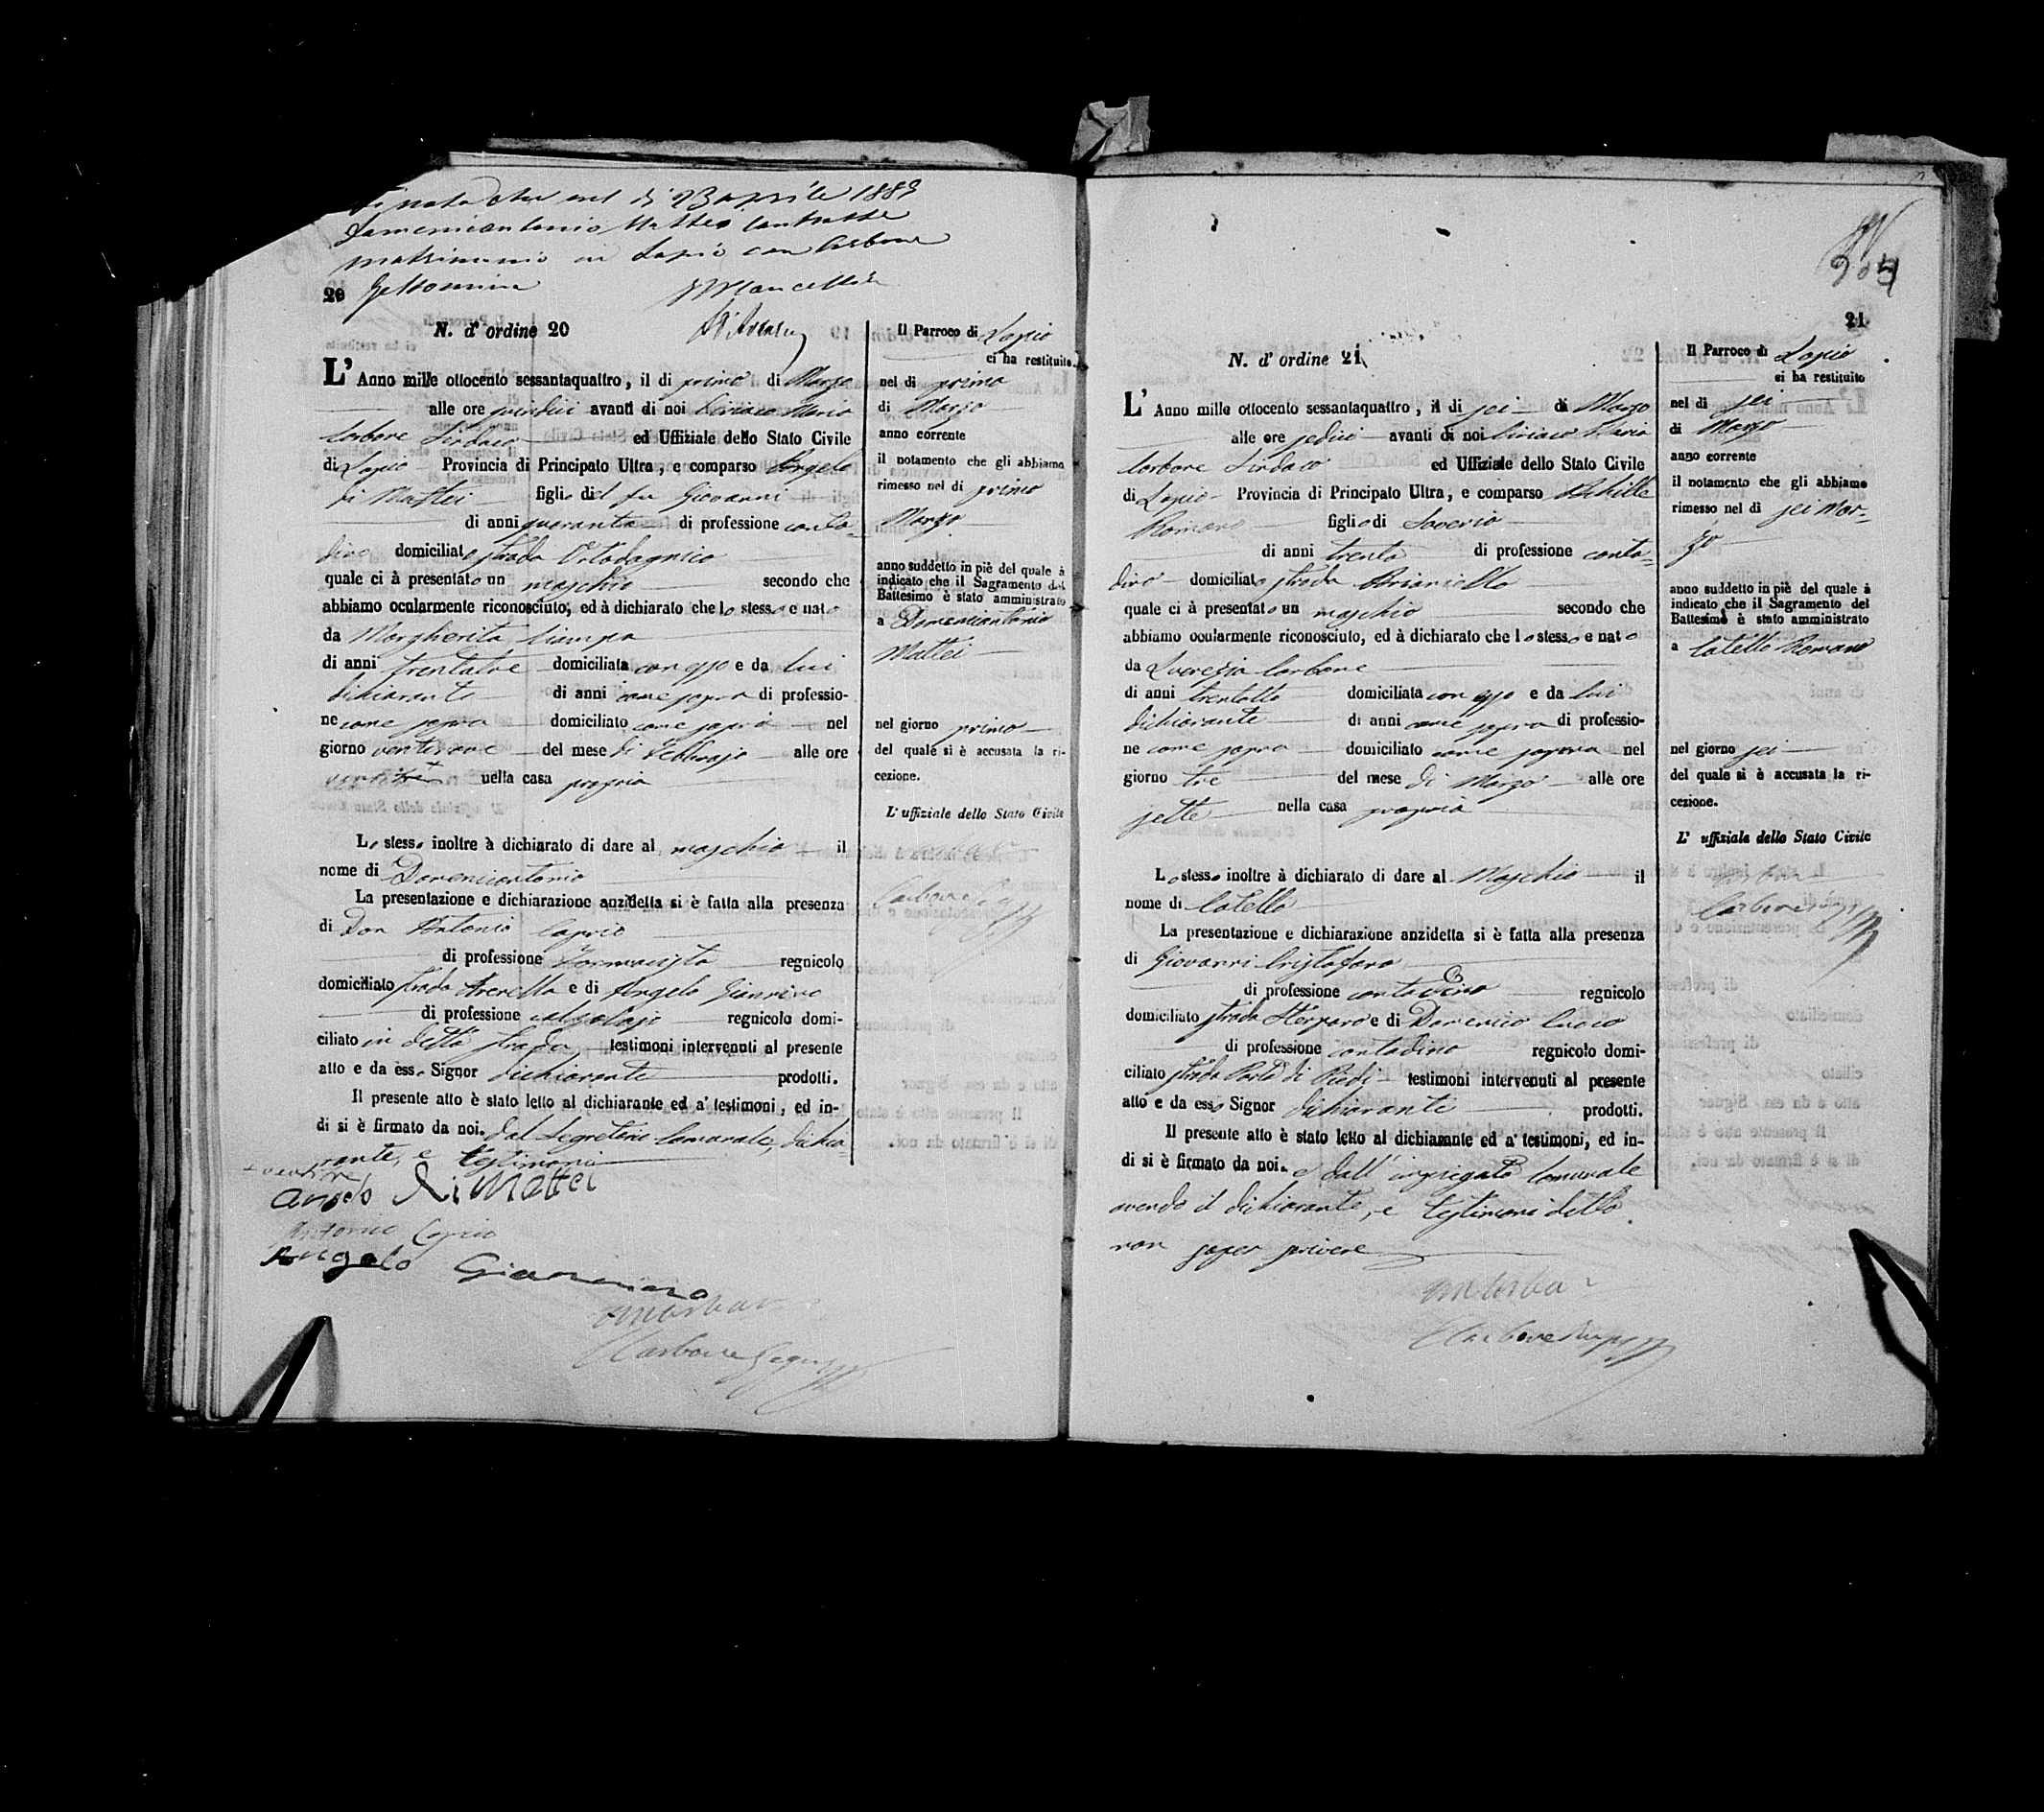 nel di 23 aprile 1889
Domenicantonio Mattei
matrimonio in Lapio con Carbone
20
N. d' ordine 20
L' Anno mille ottocento sessantaquattro, il di primo di Marzo
alle ore avanti di noi Ciriaco Maria
Carbone Sindaco ed Uffiziale dello Stato Civile
di Lapio Provincia di Principato Ultra, e comparso Angelo
di Mattei figlio del fu Giovanni
di anni quaranta di professione conta-
dino domiciliato strada
quale ci à presentato un maschio secondo che
abbiamo ocularmente riconosciuto, ed à dichiarato che lo stesso e nato
da Margherita Ciampa
di anni trentatre domiciliata con esso e da lui
dichiarante di anni come sopra di professio-
ne come sopra domiciliato come sopra nel
giorno ventinove del mese di Febbrajo alle ore
nella casa propria
Lo stesso inoltre à dichiarato di dare al maschio il
nome di Domenicantonio
La presentazione e dichiarazione anzidetta si è fatta alla presenza
di Don Antonio Caprio
di professione Farmacista regnicolo
domiciliato strada e di Angelo Giannino
di professione calzolajo regnicolo domi-
ciliato in detta strada testimoni intervenuti al presente
atto e da esso Signor dichiarante prodotti.
Il presente atto è stato letto al dichiarante ed a' testimoni, ed in-
di si è firmato da noi. dal Segretario Comunale, dichia
rante, e testimoni
Angelo di Mattei
Antonio Caprio
Angelo Giannino
Carbone
Il Parroco di Lapio
ci ha restituito
nel di primo
di Marzo
anno corrente
il notamento che gli abbiamo
rimesso nel di primo
Marzo
anno suddetto in piè del quale à
indicato che il Sagramento del
Battesimo è stato amministrato
a Domenicantonio
Mattei
nel giorno primo
del quale si è accusata la ri-
cezione.
L' uffiziale dello Stato Civile
Carbone
21
N. d' ordine 21
L' Anno mille ottocento sessantaquattro, il di sei di Marzo
alle ore sedici avanti di noi Ciriaco Maria
Carbone Sindaco ed Uffiziale dello Stato Civile
di Lapio Provincia di Principato Ultra, e comparso Achille
Romano figlio di Saverio
di anni trenta di professione conta-
dino domiciliato strada
quale ci à presentato un maschio secondo che
abbiamo ocularmente riconosciuto, ed à dichiarato che lo stesso e nato
da Lucrezia Carbone
di anni trentotto domiciliata con esso e da lui
dichiarante di anni come sopra di professio-
ne come sopra domiciliato come sopra nel
giorno tre del mese di Marzo alle ore
sette nella casa propria
Lo stesso inoltre à dichiarato di dare al Maschio il
nome di Catello
La presentazione e dichiarazione anzidetta si è fatta alla presenza
di Giovanni Cristofaro
di professione contadino regnicolo
domiciliato strada e di Domenico
di professione contadino regnicolo domi-
ciliato strada testimoni intervenuti al presente
atto e da esso Signor dichiarante prodotti.
Il presente atto è stato letto al dichiarante ed a' testimoni, ed in-
di si è firmato da noi. e dall' impiegato Comunale
avendo il dichiarante, e testimoni detto
non saper scrivere
Carbone
Il Parroco di Lapio
ci ha restituito
nel di sei
di Marzo
anno corrente
il notamento che gli abbiamo
rimesso nel di sei Mar-
zo
anno suddetto in piè del quale à
indicato che il Sagramento del
Battesimo è stato amministrato
a Catello Romano
nel giorno sei
del quale si è accusata la ri-
cezione.
L' uffiziale dello Stato Civile
Carbone